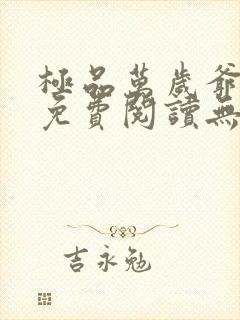 極品萬歲爺
免費閱讀無
吉永勉